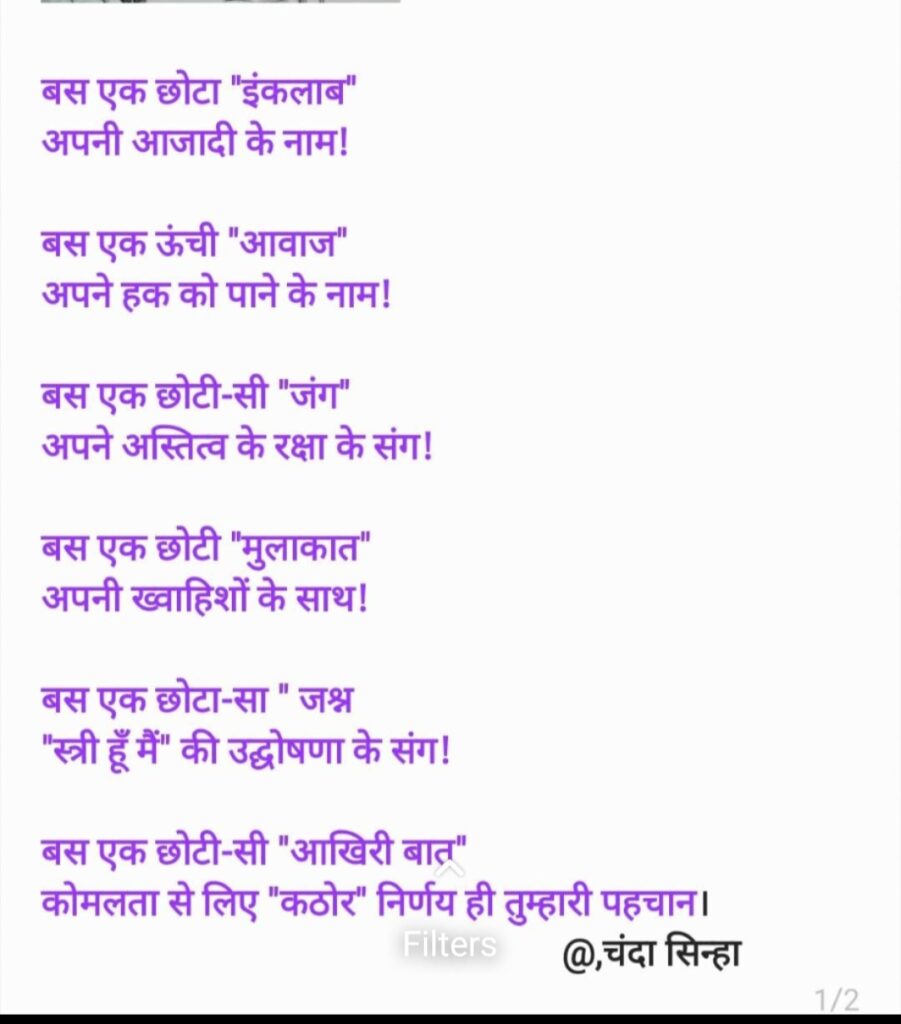 बस एक छोटा "इंकलाब"
अपनी आजादी के नाम!
बस एक ऊंची "आवाज"
अपने हक को पाने के नाम!
बस एक छोटी-सी "जंग"
अपने अस्तित्व के रक्षा के संग!
बस एक छोटी "मुलाकात"
अपनी ख्वाहिशों के साथ!
बस एक छोटा-सा " जश्न
"स्त्री हूँ मैं" की उद्घोषणा के संग!
बस एक छोटी-सी "आखिरी बात"
कोमलता से लिए "कठोर" निर्णय ही तुम्हारी पहचान।
Filters
@,चंदा सिन्हा
1/2